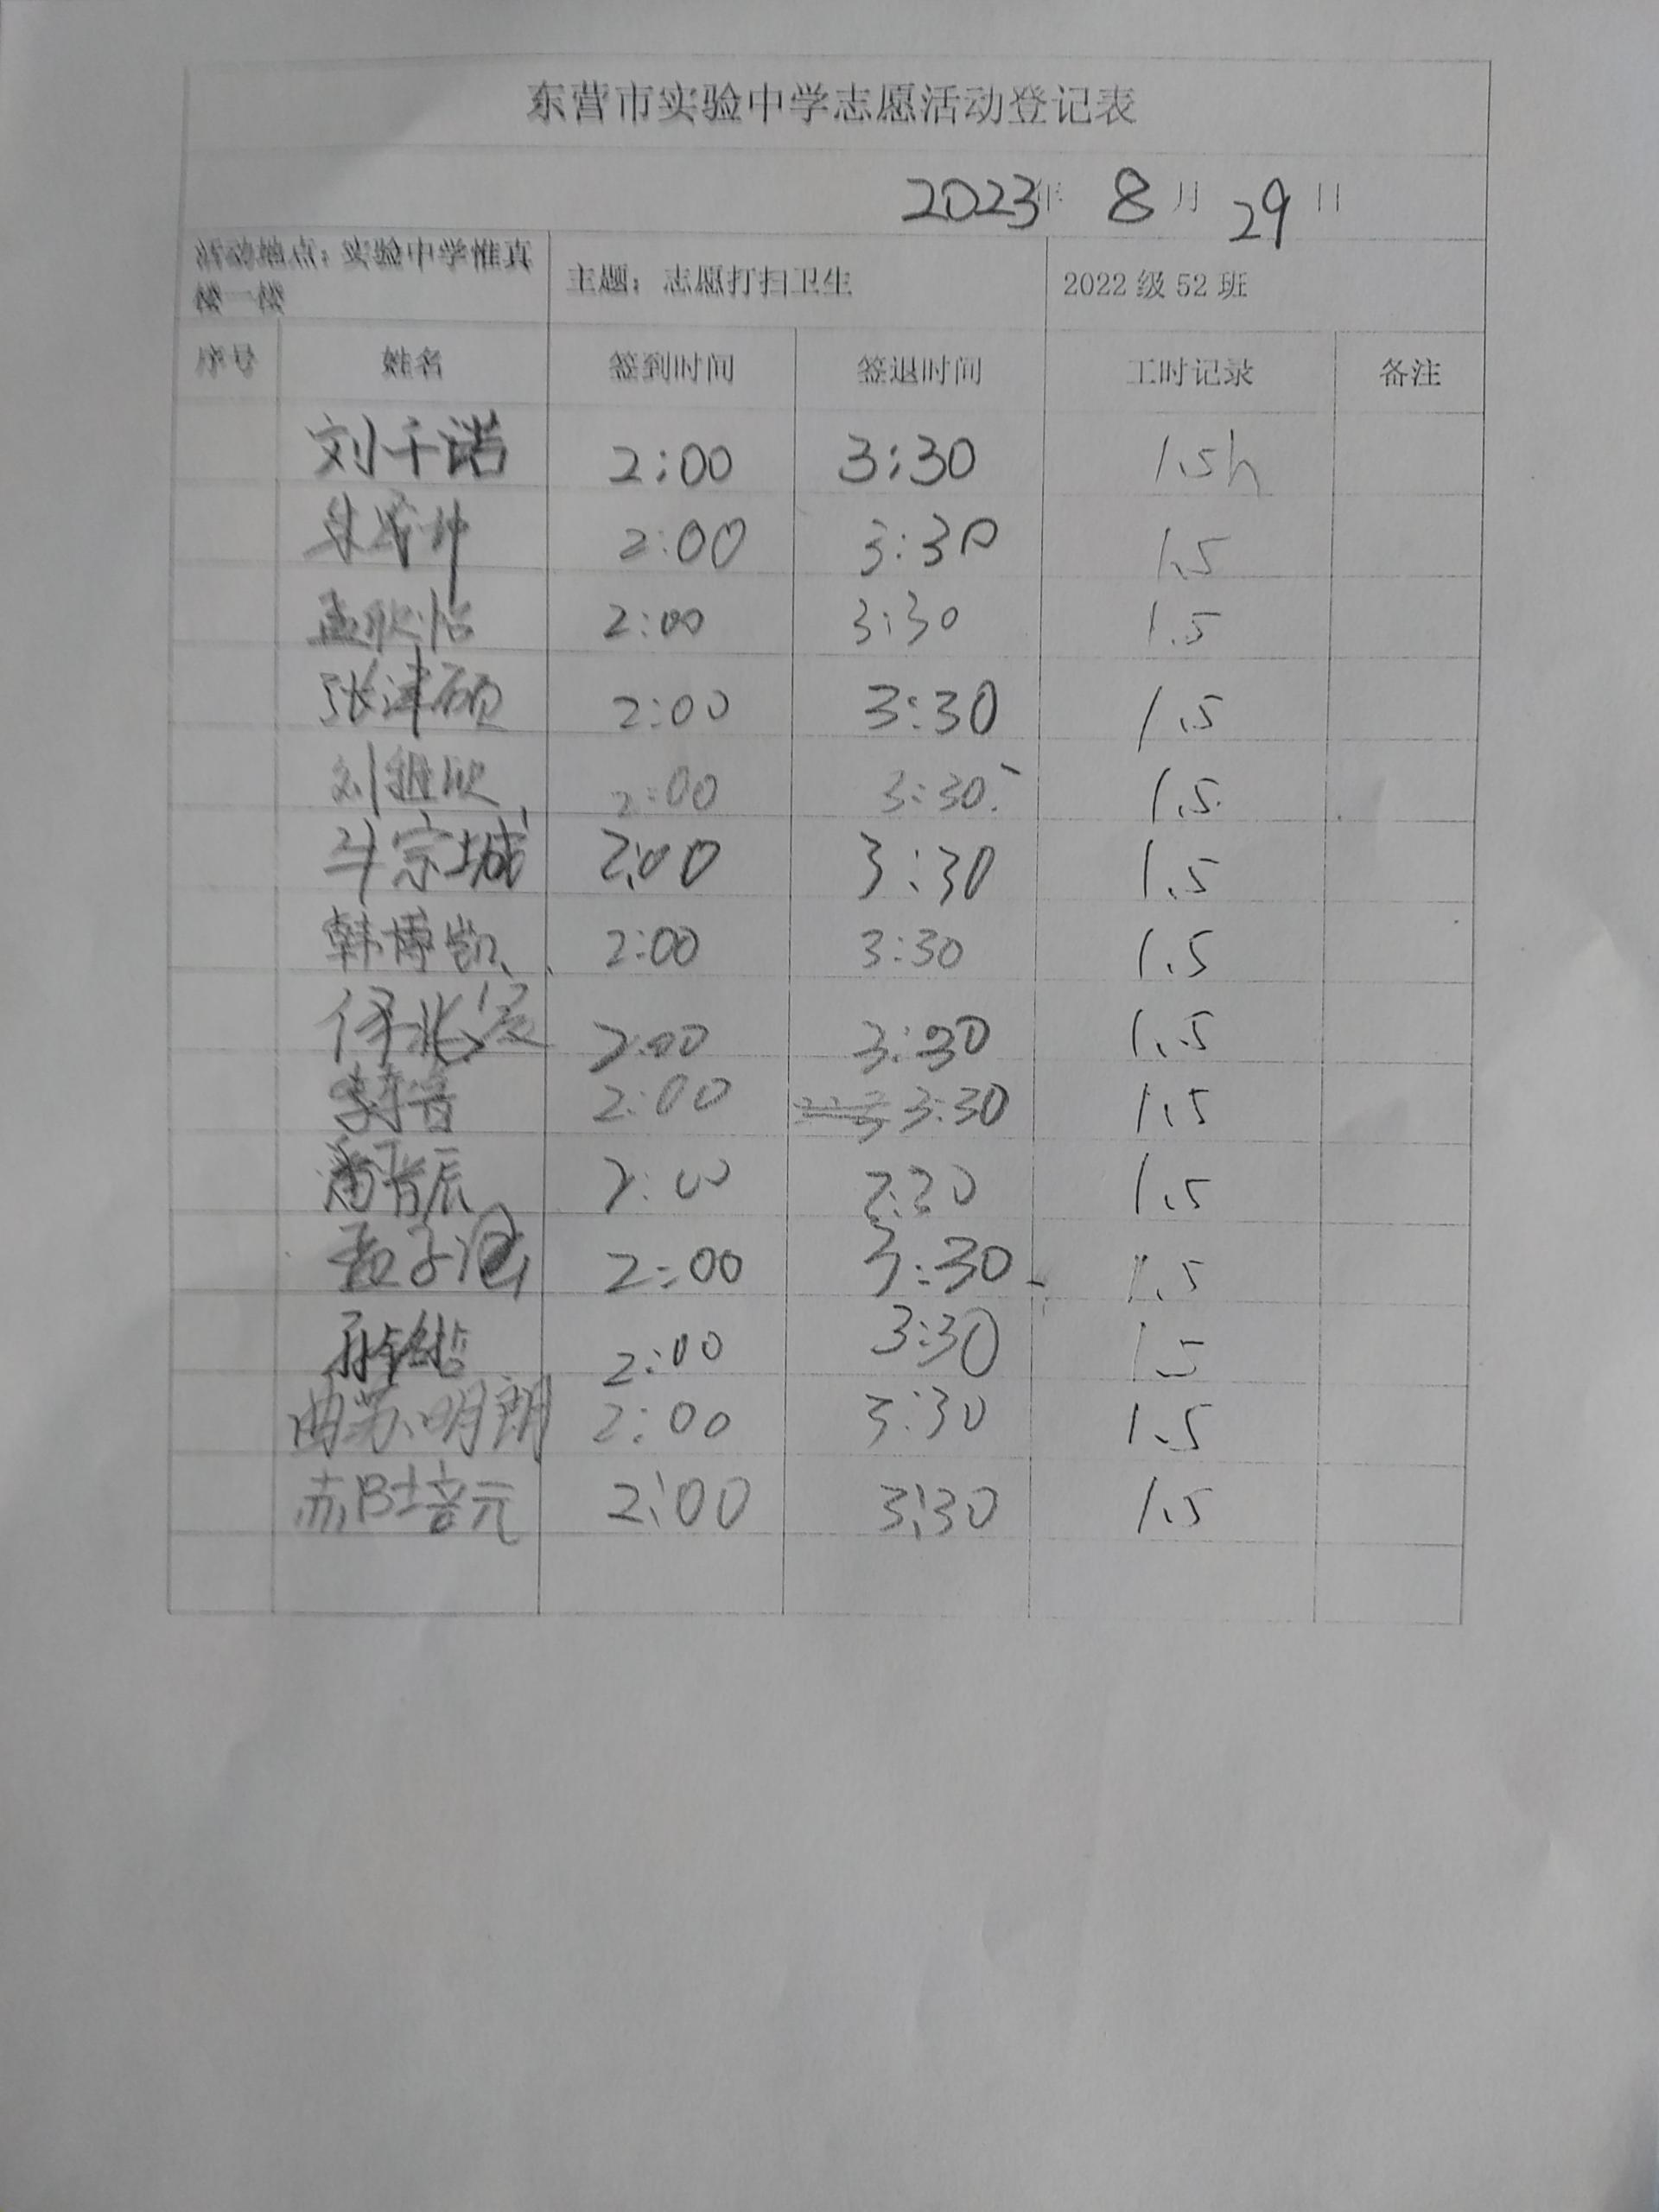 东营市实验中学志愿活动登记表
2023年 8月 29日
活动地点：实验中学惟真楼一楼 主题：志愿打扫卫生 2022级52班
序号 姓名 签到时间 签退时间 工时记录 备注
刘千诺 2:00 3:30 1.5h
2:00 3:30 1.5
孟欣怡 2:00 3:30 1.5
张津硕 2:00 3:30 1.5
刘 欣 2:00 3:30 1.5
宗城 2:00 3:30 1.5
韩博凯 2:00 3:30 1.5
2:00 3:30 1.5
2:00 3:30 1.5
潘晋辰 2:00 1.5
2:00 3:30 1.5
2:00 3:30 1.5
曲苏明朗 2:00 3:30 1.5
2:00 3:30 1.5